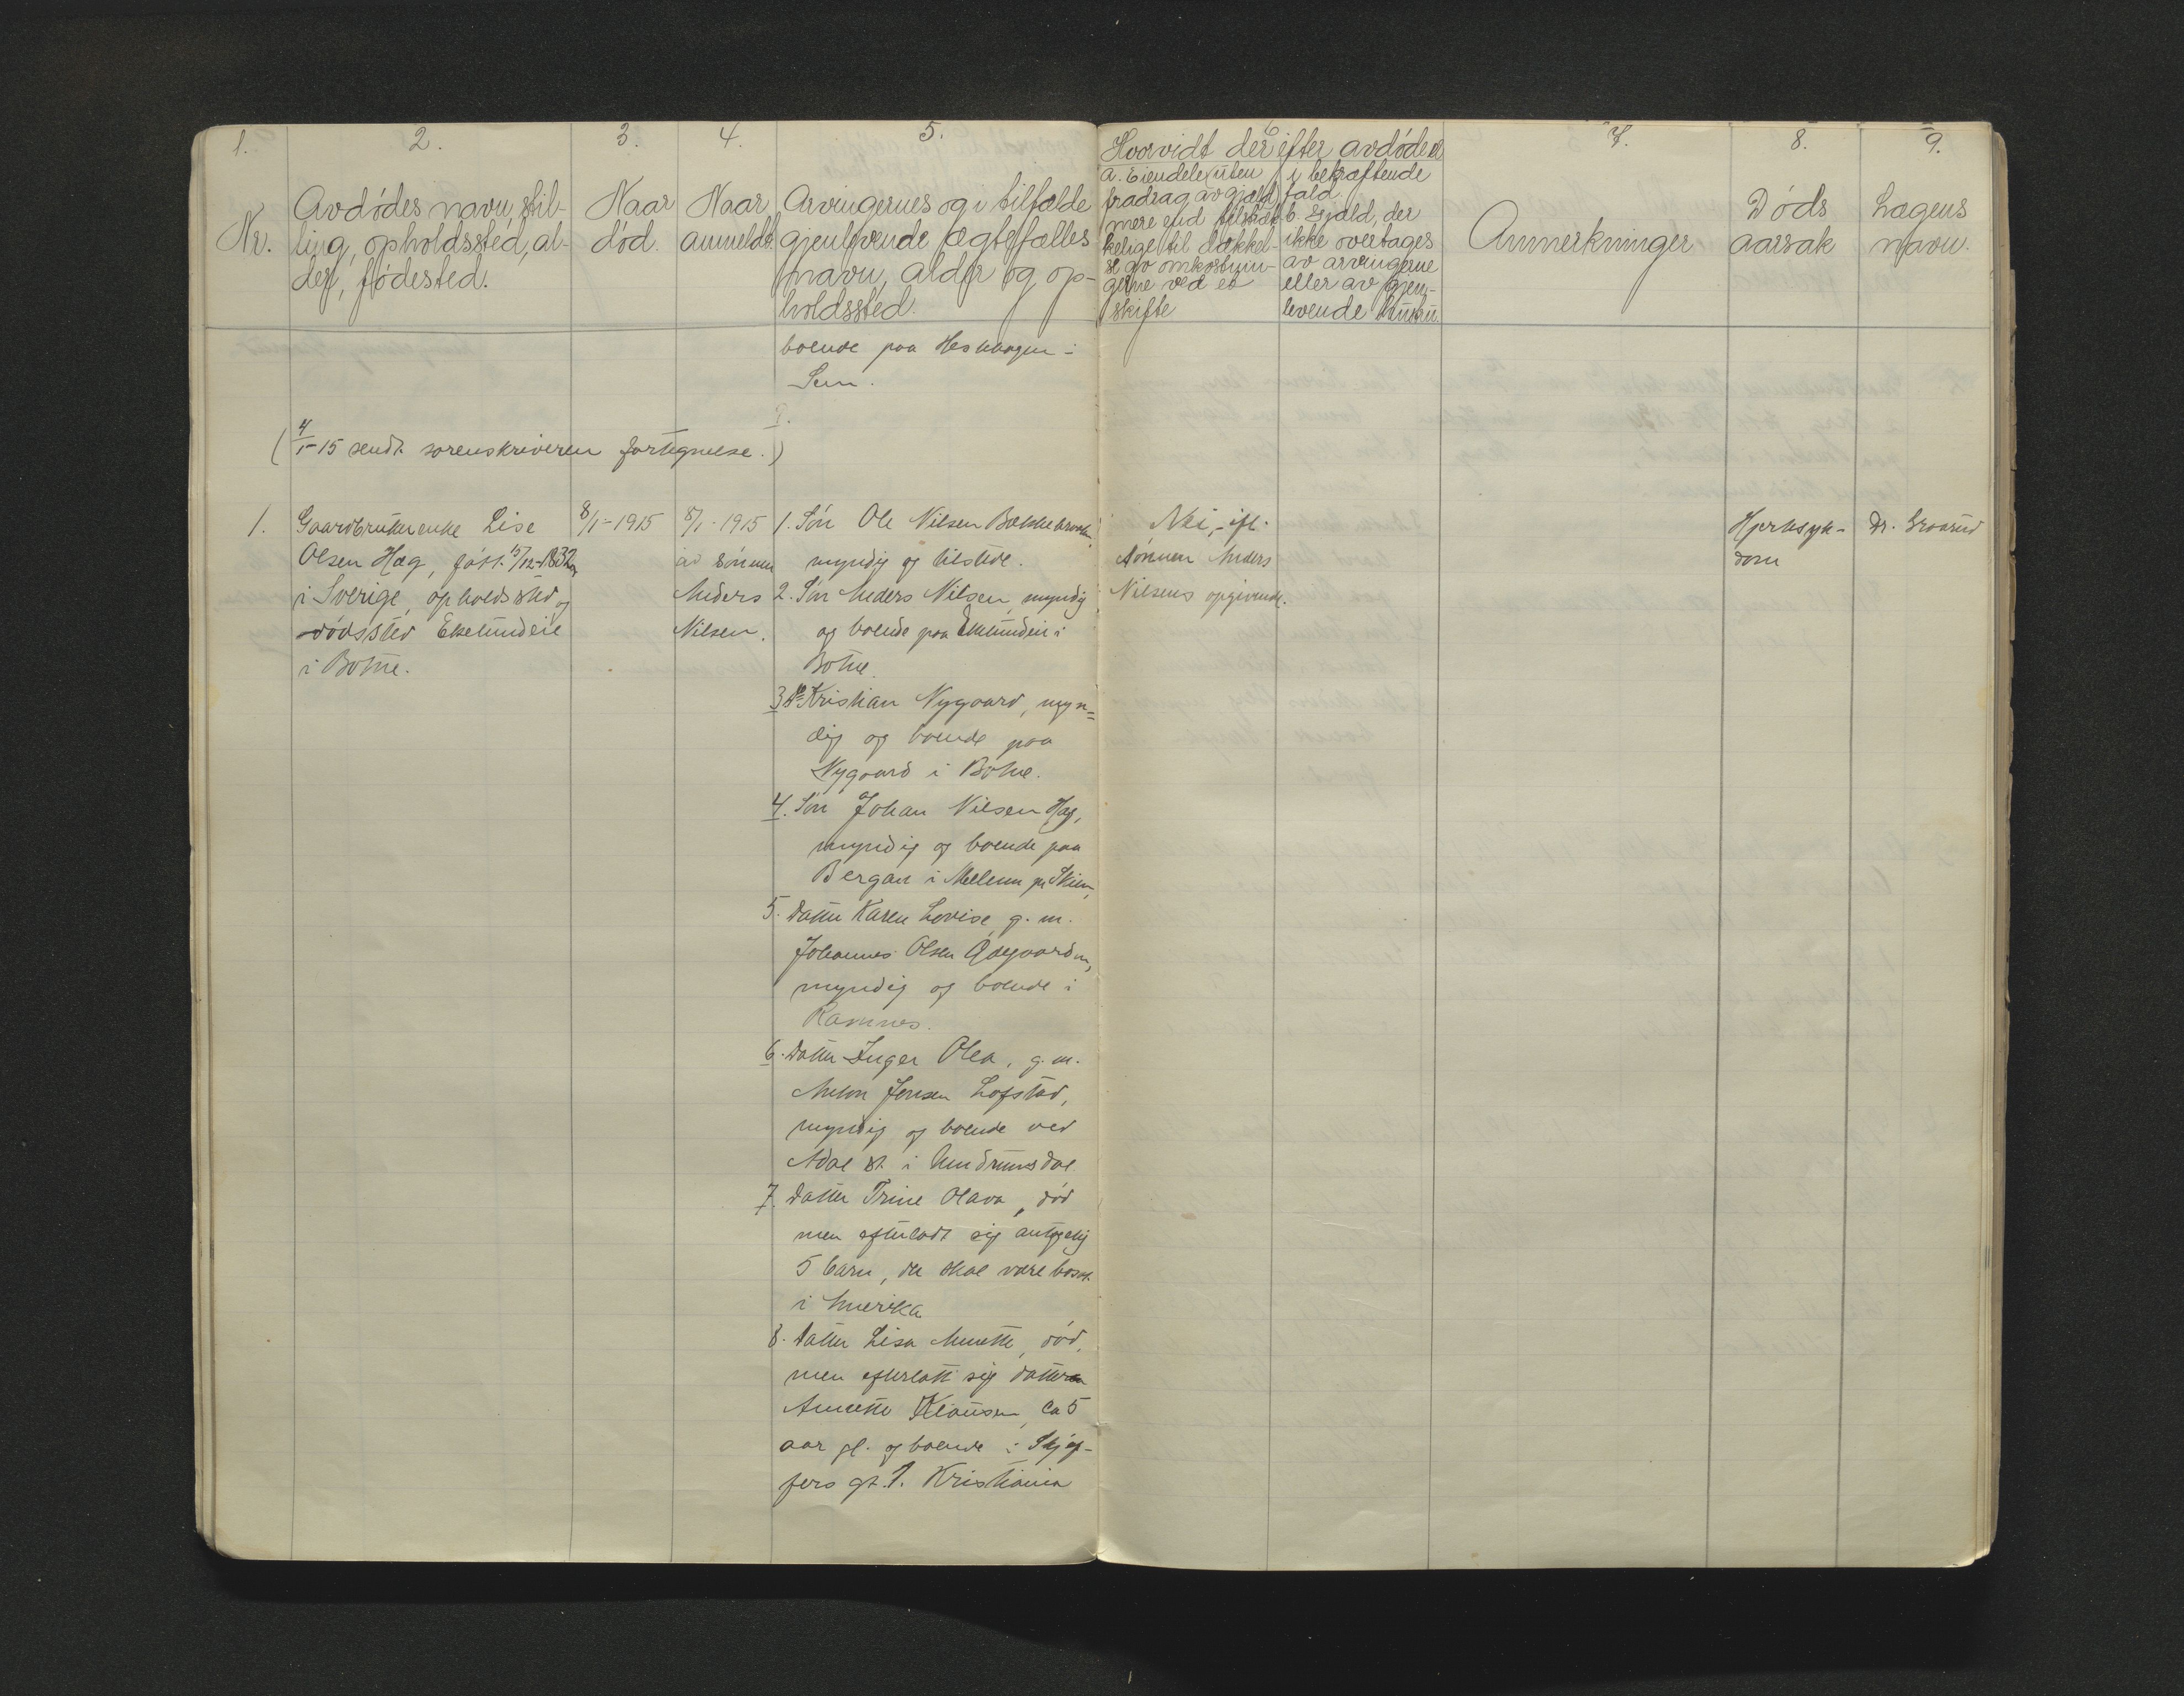 1.
2.
3.
4.
5.
6
7.
8.
9.
Nr.
Avdødes navn, stil-
ling, opholdssted, al-
der, fødested.
Naar
død.
Naar
anmeldt.
Arvingernes og i tilfælde
gjenlevende ægtefælles
navn, alder og op-
holdssted.
Hvorvidt der efter avdøde er
a. Eiendele uten
fradrag av gjæld
mere end tilstræk
kelige til dækkel-
se av omkostnin-
gerne ved et
skifte
i bekræftende
fald.
b. Gjæld, der
ikke overtages
av arvingerne
eller av gjen-
levende
Anmerkninger
Døds
aarsak
Lægens
navn.
boende paa i
Sem.
(4/1-15 sendt sorenskriveren fortegnelse.)
1.
Gaardbrukerenke Lise
Olsen Hæg, født 15/12-1832
i Sverige, opholdssted og
dødssted Ekelundeie
i Botne.
8/1-1915
8/1-1915
av sønnen
Anders
Nilsen.
1. Søn Ole Nilsen
myndig og tilstede.
2. Søn Anders Nilsen, myndig
og boende paa Ekelundeie i
Botne.
3. Kristian Nygaard, myn=
dig og boende paa
Nygaard i Botne.
4. Søn Johan Nilsen Hæg,
myndig og boende paa
Bergan i Melum pr Skien,
5. Datter Karen Lovise, g. m.
Johannes Olsen Ødegaarden,
myndig og boende i
Ramnes.
6. Datter Inger Olea, g. m.
Anton Jensen Lofstad,
myndig og boende ved
Adal st. i Undrumsdal
7. Datter Trine Olava, død
men efterlodt sig antagelig
5 barn, der skal være bosat
i Amerika
8. Datter Lisa Annette, død,
men efterlatt sig datter
Annette Klausen, ca 5
aar gl. og boende i Skjøp-
fers gt. 1. Kristiania
Nei, ifl.
sønnen Anders
Nilsens opgivende.
Hjertesyk-
dom
Dr. Graarud